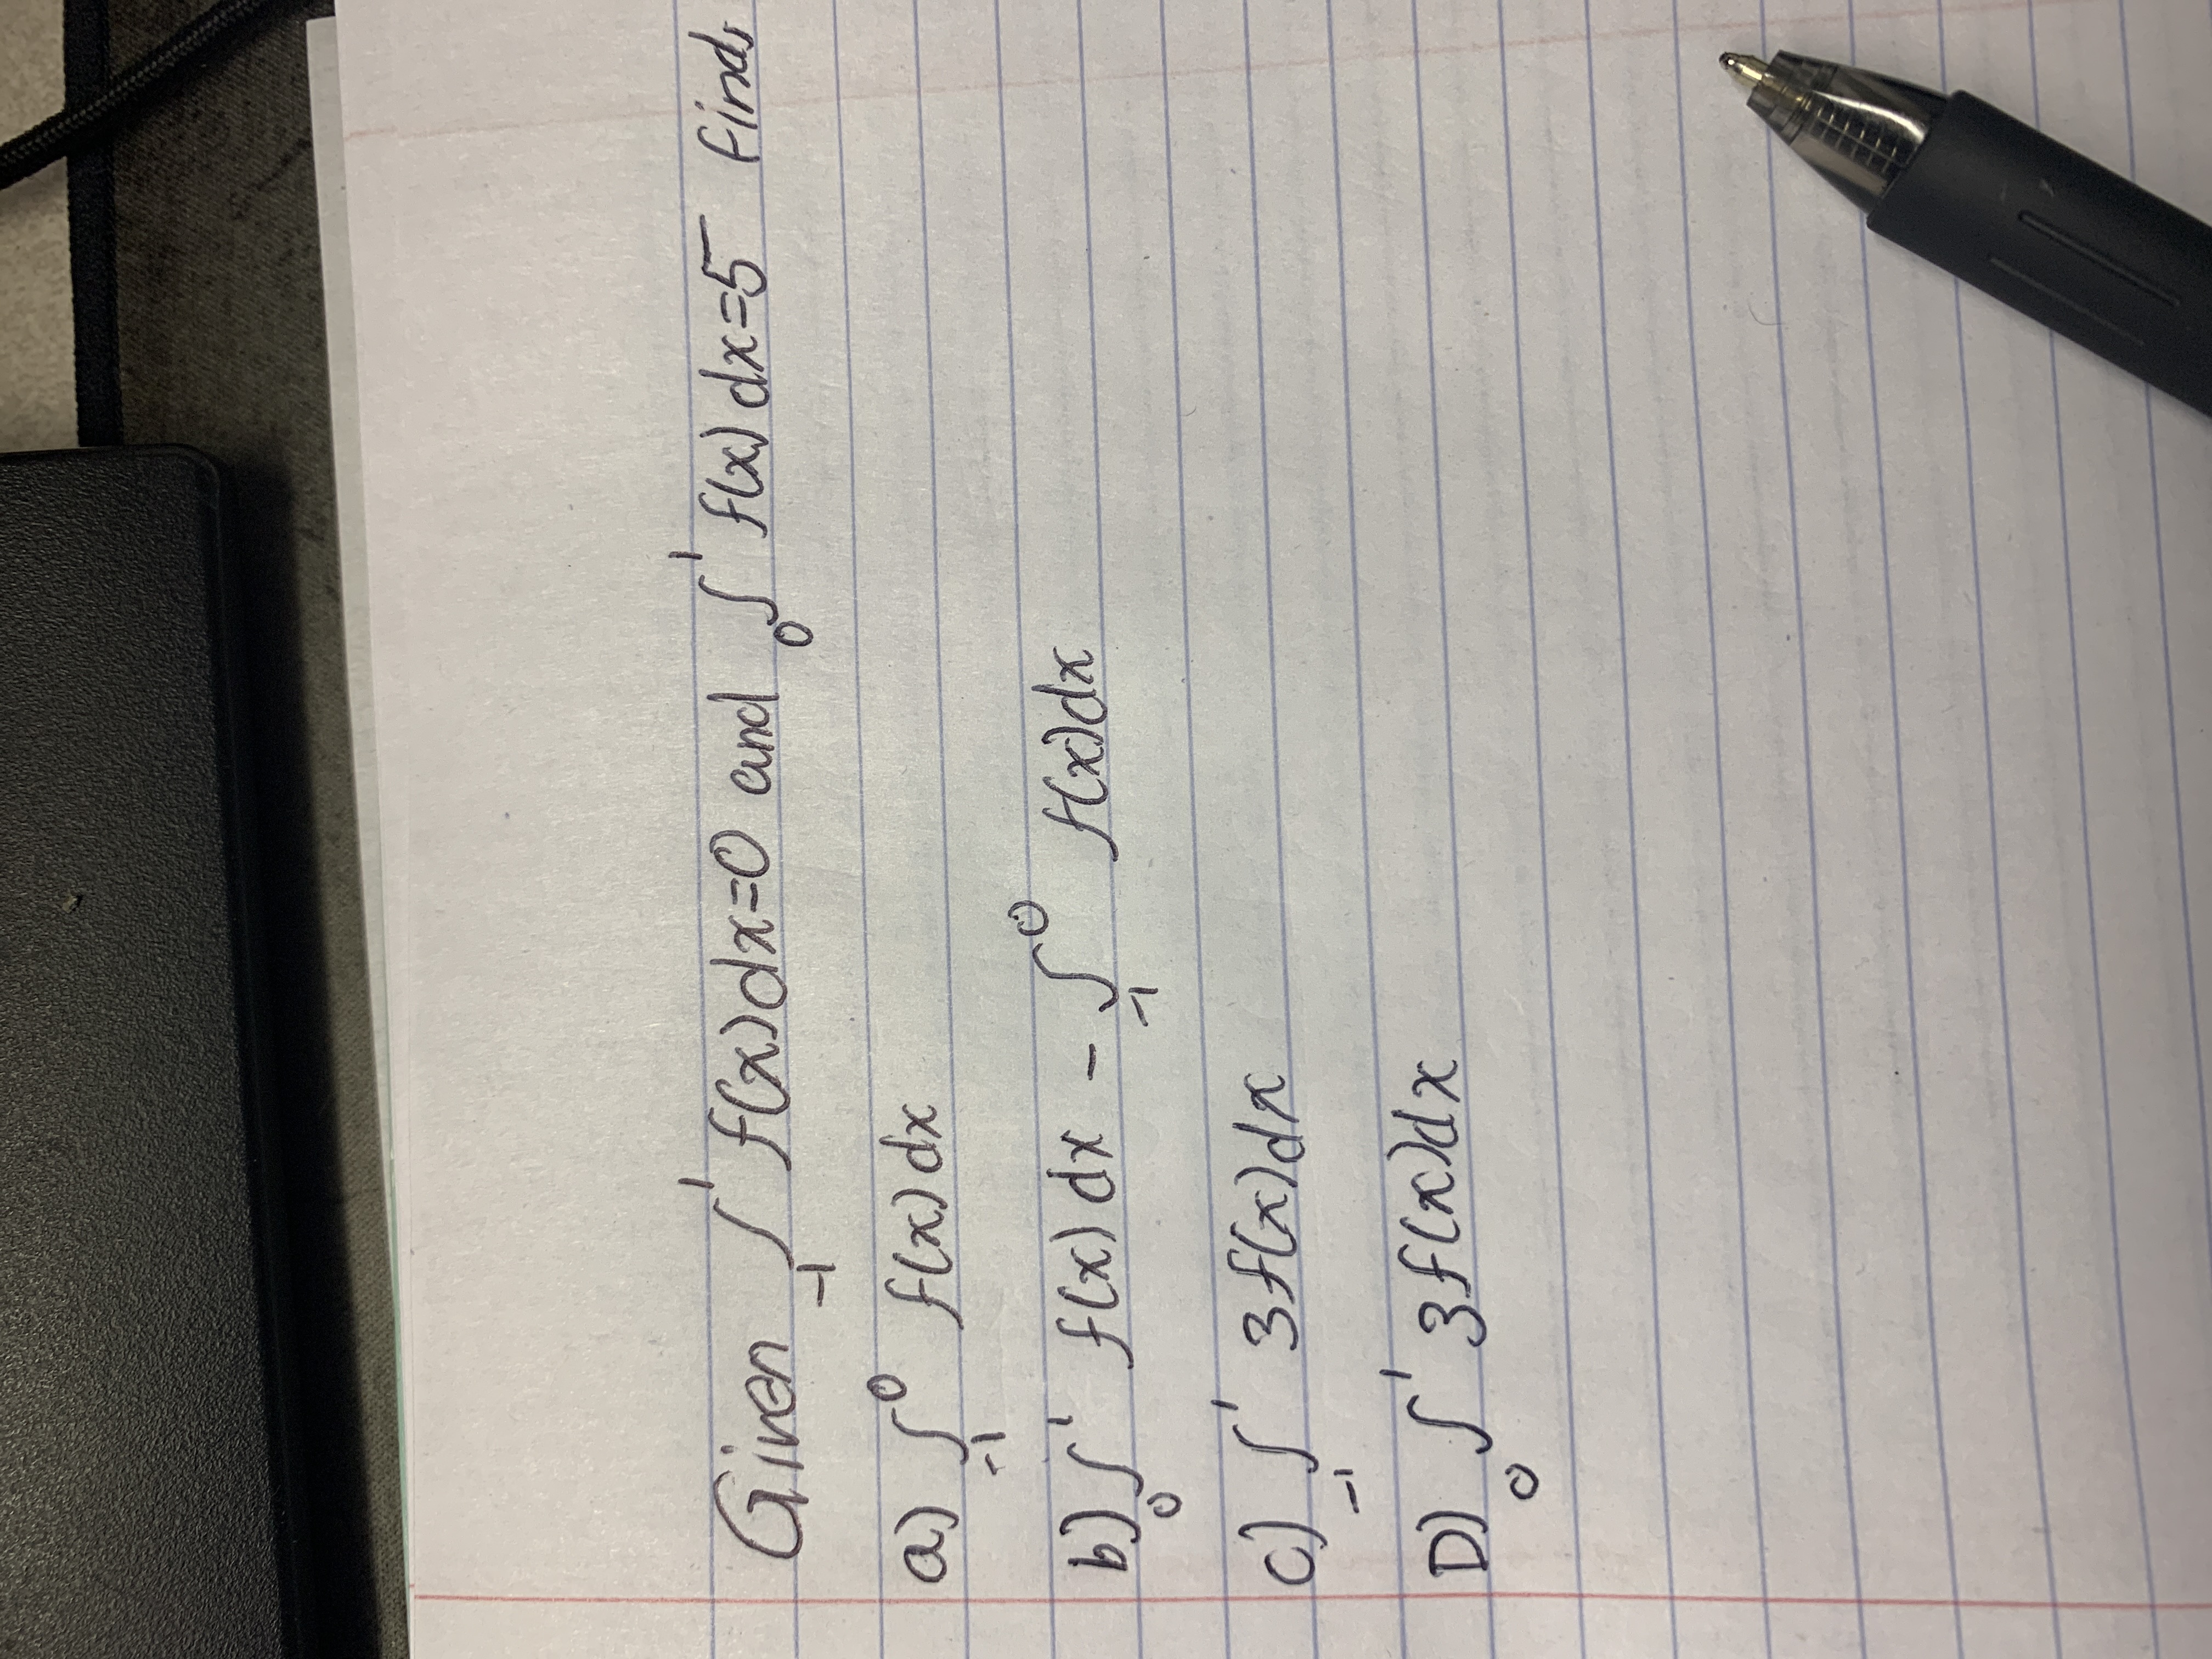 Given ₋₁∫¹ f(x)dx=0 and ₀∫¹ f(x)dx=5 find,
a) ₋₁∫⁰ f(x)dx
b) ₀∫¹ f(x)dx - ₋₁∫⁰ f(x)dx
c) ₋₁∫¹ 3f(x)dx
D) ₀∫¹ 3f(x)dx